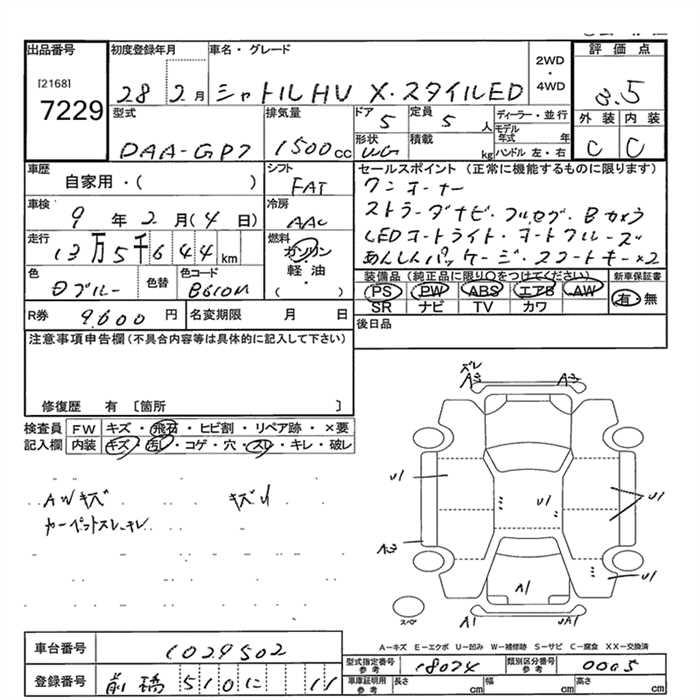 出品番号
[2168]
7229
初度登録年月
28 2月
車名・グレード
シャトルHV X・スタイルED
2WD
・
4WD
評価点
3.5
外装 内装
C C
型式
DAA-GP7
排気量
1500cc
ドア
5
定員
5人
形状
WG
積載
kg
ディーラー・並行
モデル年式 年
ハンドル 左・右
車歴
自家用・( )
車検
9年2月(4日)
走行
13万5千644km
色
Dブルー
色替
色コード
B610M
シフト
FAT
冷房
AAC
燃料
ガソリン
・
軽油
( )
セールスポイント (正常に機能するものに限ります)
ワンオーナー
ストラーダナビ・フルセグ・Bカメラ
LEDオートライト・オートクルーズ
あんしんパッケージ・スマートキー×2
装備品(純正品に限り○をつけてください)
PS PW ABS エアB AW
SR ナビ TV カワ
新車保証書
有・無
R券
9,600円
名変期限 月 日
後日品
注意事項申告欄(不具合内容等は具体的に記入して下さい)
修復歴 有 [箇所 ]
検査員記入欄
FW キズ・飛石・ヒビ割・リペア跡・×要
内装 キズ・汚レ・コゲ・穴・スレ・キレ・破レ
AWキズ
キズU
カーペットスレ・キレ
ズレ
A3 A3
U1 U1 U1
A3
U1
A1
A1 UA1
スペア
A-キズ E-エクボ U-凹み W-補修跡 S-サビ C-腐食 XX-交換済
車台番号
1029502
登録番号
前橋 510 に 11
型式指定番号 参考
18024
類別区分番号 参考
0005
車庫証明用 参考
長さ cm
幅 cm
高さ cm